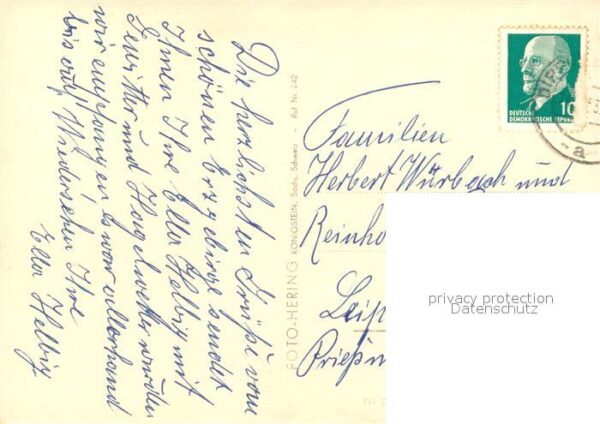 Die herzlichsten Grüße vom
schönen Erzgebirge sendet
Ihnen Ihre Ella Helbig mit
und Hagelwetter wurden
wir empfangen es war allerhand
bis auf Wiedersehn Ihre
Ella Helbig
FOTO-HERING KÖNIGSTEIN, Sächs. Schweiz Ruf Nr. 242
DEUTSCHE
DEMOKRATISCHE REPUBLIK
10
a
Familien
Herbert Würbach und
Reinho
Leip
Prießn
privacy protection
Datenschutz